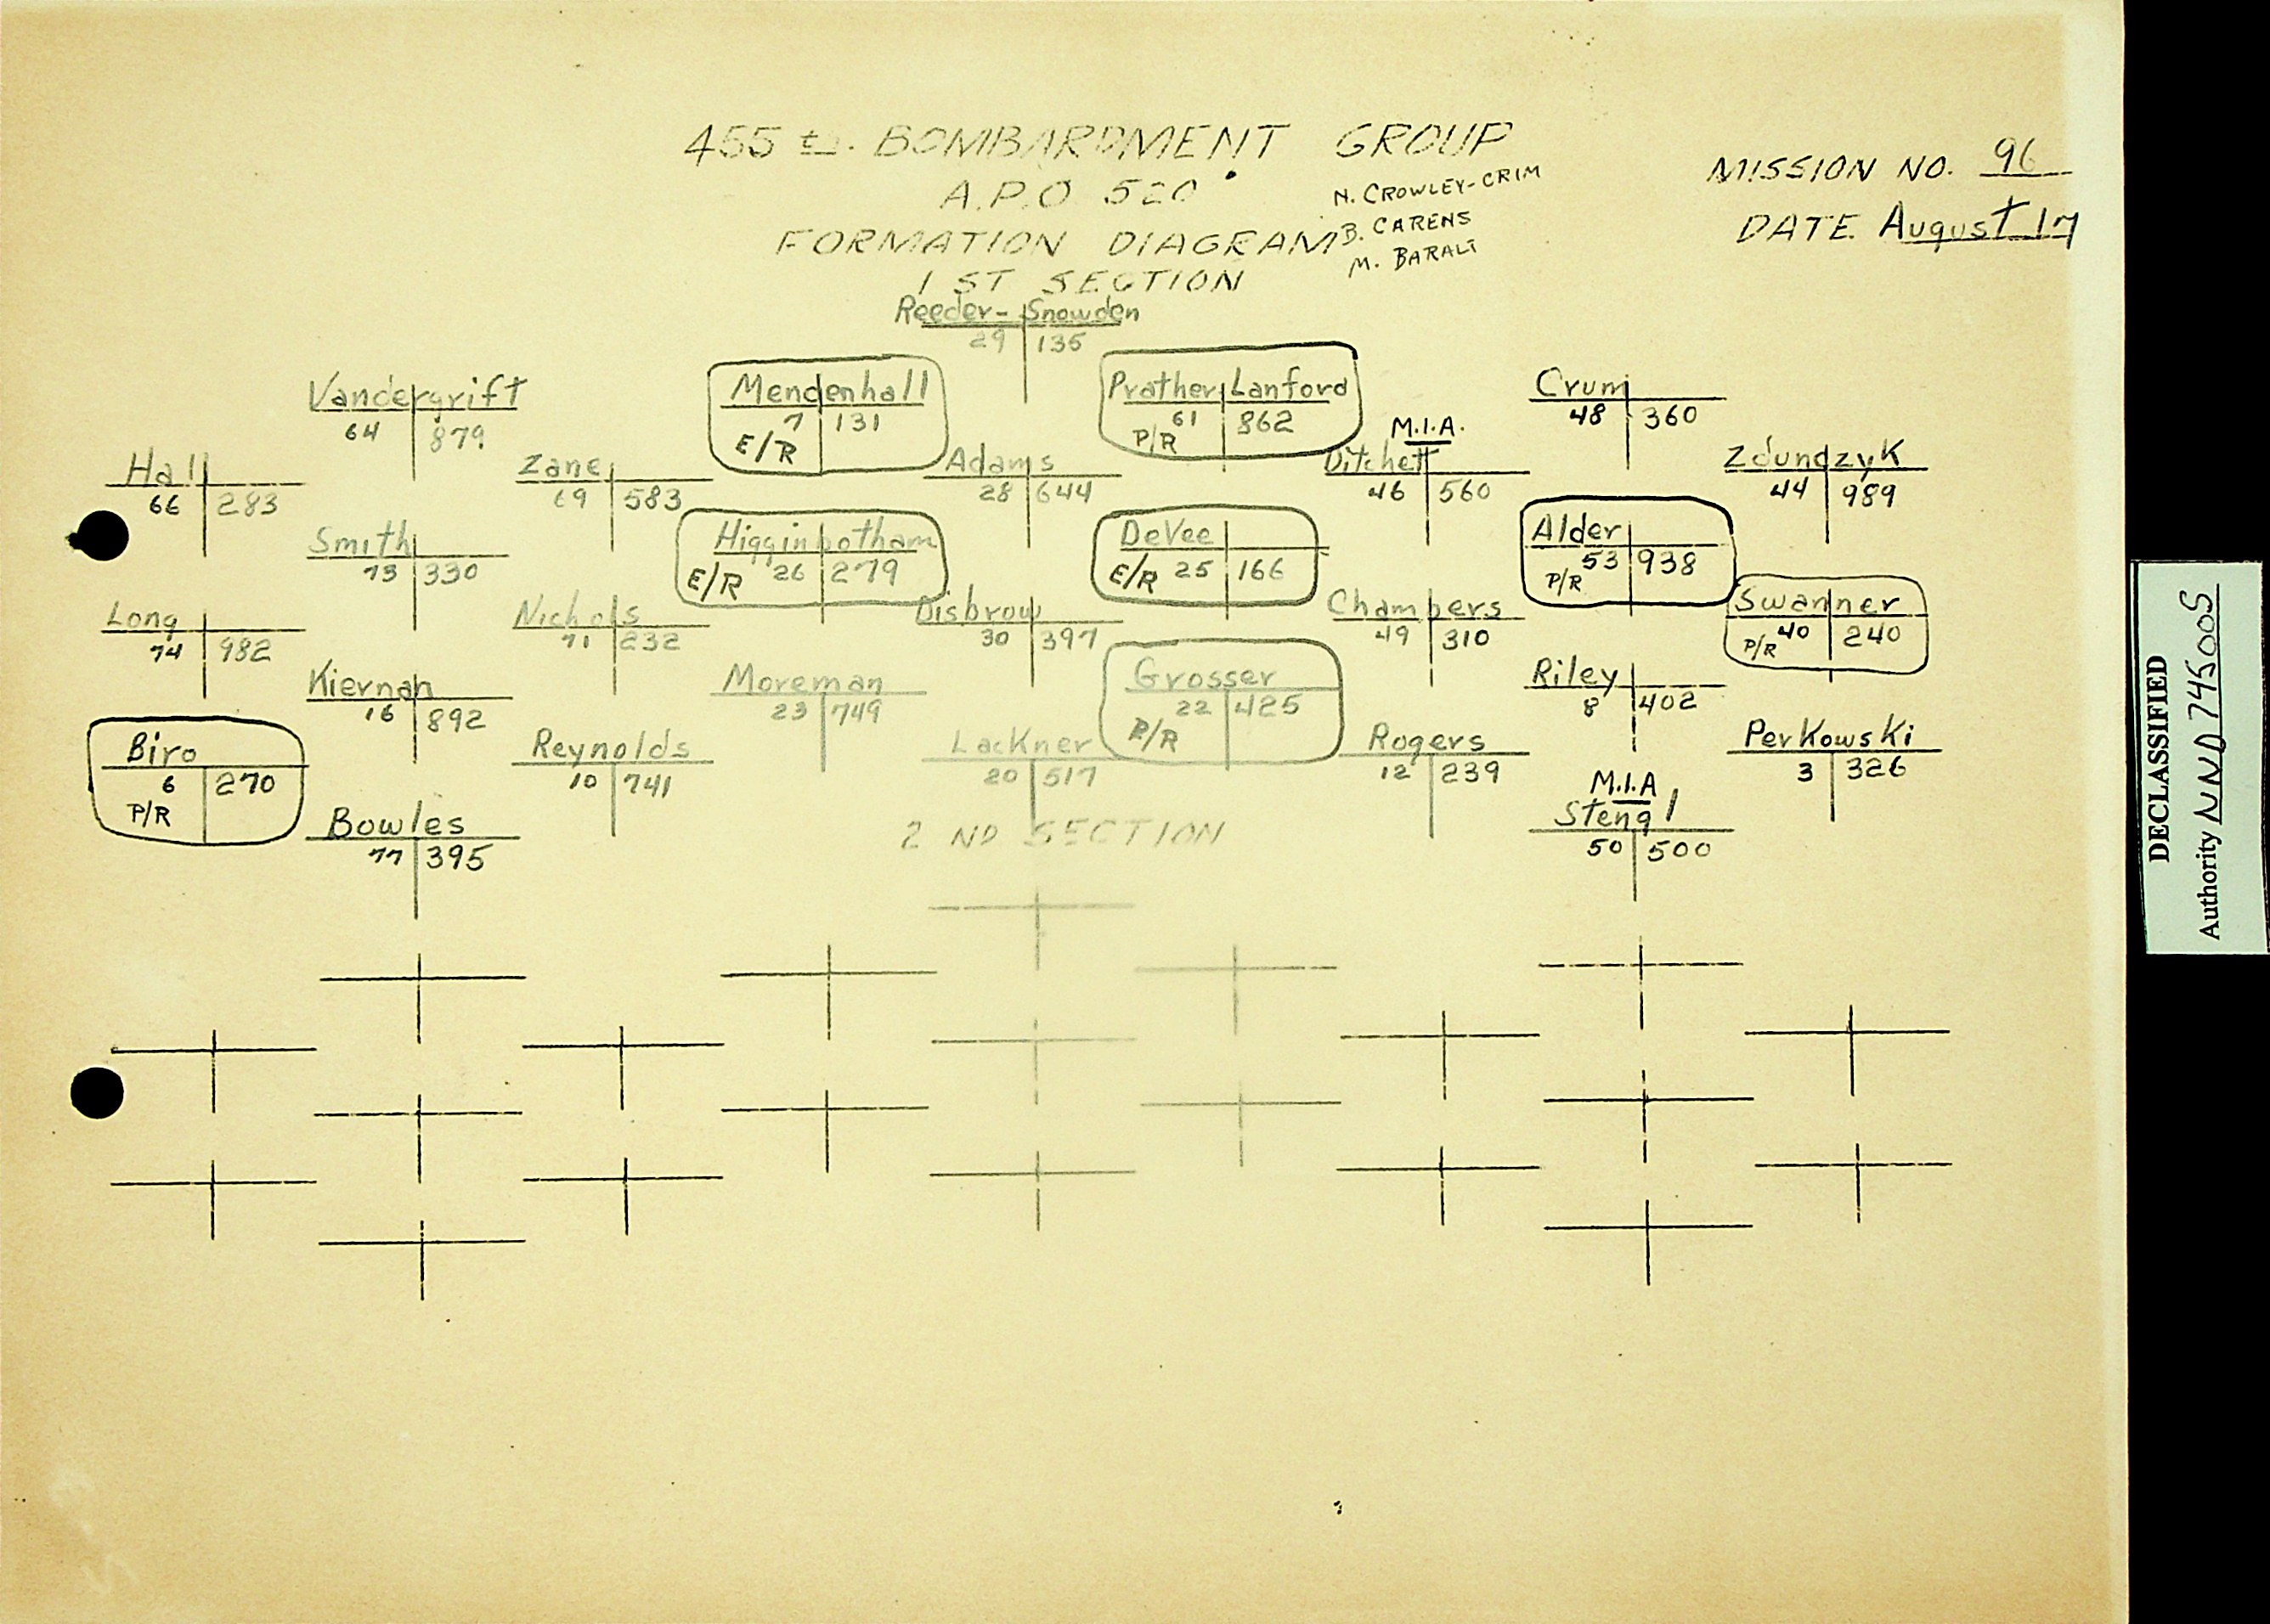 455 th. BOMBARDMENT GROUP
A.P.O 520
N. CROWLEY-CRIM
B. CARENS
M. BARALT
MISSION NO. 96
DATE August 17
FORMATION DIAGRAM
1 ST SECTION
Reeder - Snowden
29 135
Vandergrift
64 879
Mendenhall
7 131
E/R
Prather Lanford
61 862
P/R
Crum
48 360
Hall
66 283
Zane
69 583
Adams
28 644
M.I.A.
Ditchet
46 560
Zdundzyk
44 989
Smith
73 330
Higginbotham
E/R 26 279
DeVee
E/R 25 166
Alder
53 938
P/R
Long
74 982
Nichols
71 232
Disbrow
30 397
Chambers
49 310
Swanner
P/R 40 240
Kiernan
16 892
Moreman
23 749
Grosser
22 425
P/R
Riley
8 402
Biro
6 270
P/R
Reynolds
10 741
Lackner
20 517
Rogers
12 239
Perkowski
3 326
Bowles
77 395
M.I.A
Stengl
50 500
2 ND SECTION
DECLASSIFIED
Authority NND 745005